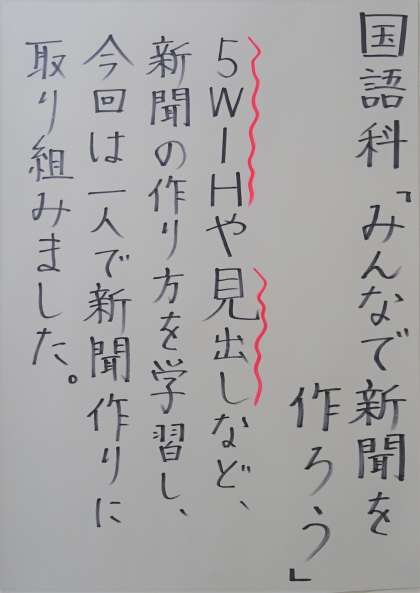 国語科「みんなで新聞を
作ろう」
5W1Hや見出しなど、
新聞の作り方を学習し、
今回は一人で新聞作りに
取り組みました。